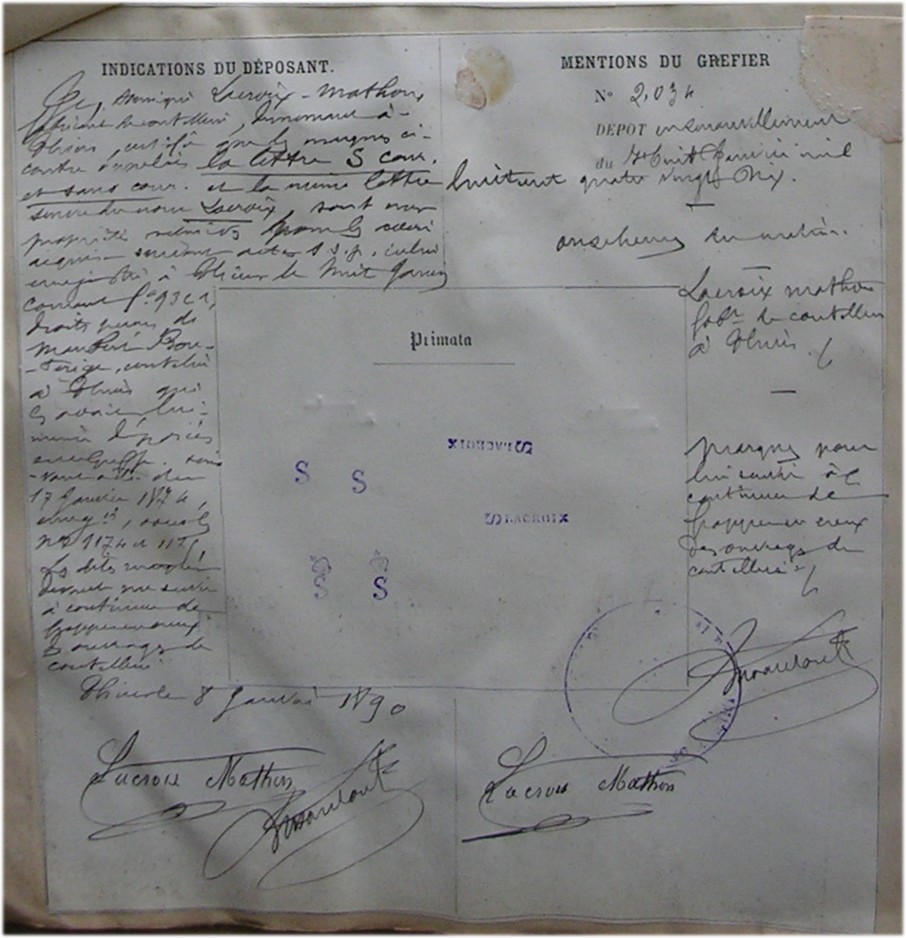 INDICATIONS DU DÉPOSANT.
Je, Dominique Lacroix-Mathon
fabricant de coutellerie, demeurant à
Thiers, certifie que les marques ci-
contre appelées la lettre S cour.
et sans cour. et la même lettre
suivie du nom Lacroix sont ma
propriété
acquis suivant acte s.s.p.
enregistré à Thiers le huit Janvier
courant f° 93 c 1
droits perçus
coutelier
à Thiers qui
les avait lui-
même déposées
au Greffe
17 Janvier 1874,
nos 1174 et
Les dites marques
devant me servir
à continuer de
frapper en creux
ouvrages de
coutellerie
Thiers le 8 Janvier 1890
Lacroix Mathon
MENTIONS DU GREFIER
N° 2,034
DÉPOT en renouvellement
du huit Janvier mil
huit cent quatre vingt dix.
onze heures du matin.
Lacroix Mathon
fabt de coutellerie
à Thiers
Marques pour
lui servir à
continuer de
frapper en creux
des ouvrages de
coutellerie
Lacroix Mathon
Primata
S LACROIX
S S
S LACROIX
S S